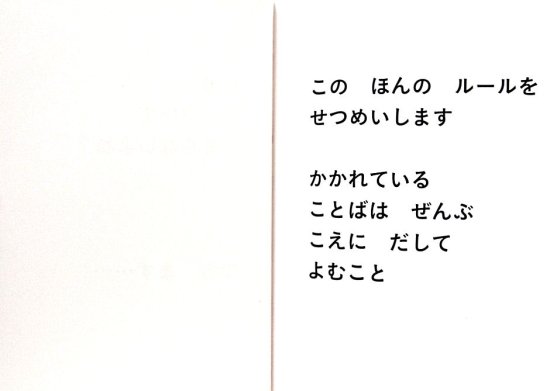 この　ほんの　ルールを
せつめいします
かかれている
ことばは　ぜんぶ
こえに　だして
よむこと